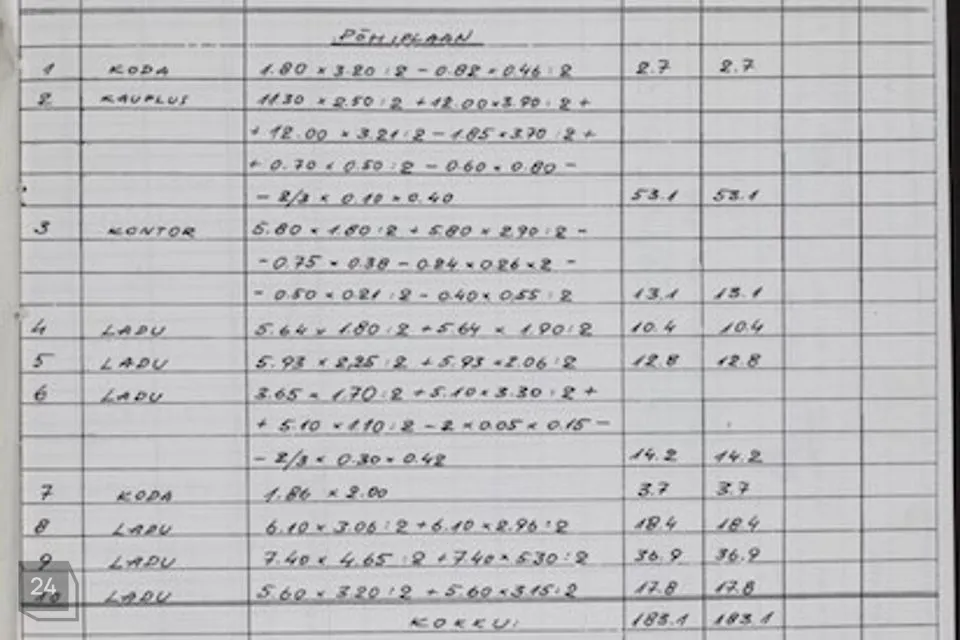 PÕHIPLAAN
1 KODA 1.80 × 3.20 : 2 – 0.82 × 0.46 : 2 2.7 2.7
2 KAUPLUS 11.30 × 2.50 : 2 + 12.00 × 3.90 : 2 +
+ 12.00 × 3.21 : 2 – 1.85 × 3.70 : 2 +
+ 0.70 × 0.50 : 2 – 0.60 × 0.80 –
– 2/3 × 0.10 × 0.40 53.1 53.1
3 KONTOR 5.80 × 1.80 : 2 + 5.80 × 2.90 : 2 –
– 0.75 × 0.38 – 0.24 × 0.26 × 2 –
– 0.50 × 0.21 : 2 – 0.40 × 0.55 : 2 13.1 13.1
4 LADU 5.64 × 1.80 : 2 + 5.64 × 1.90 : 2 10.4 10.4
5 LADU 5.93 × 2,25 : 2 + 5.93 × 2.06 : 2 12.8 12.8
6 LADU 3.65 × 1.70 : 2 + 5.10 × 3.30 : 2 +
+ 5.10 × 1.10 : 2 – 2 × 0.05 × 0.15 –
– 2/3 × 0.30 × 0.42 14.2 14.2
7 KODA 1.86 × 2.00 3.7 3.7
8 LADU 6.10 × 3.06 : 2 + 6.10 × 2.96 : 2 18.4 18.4
9 LADU 7.40 × 4.65 : 2 + 7.40 × 5.30 : 2 36.9 36.9
10 LADU 5.60 × 3.20 : 2 + 5.60 × 3.15 : 2 17.8 17.8
KOKKU: 183.1 183.1
24